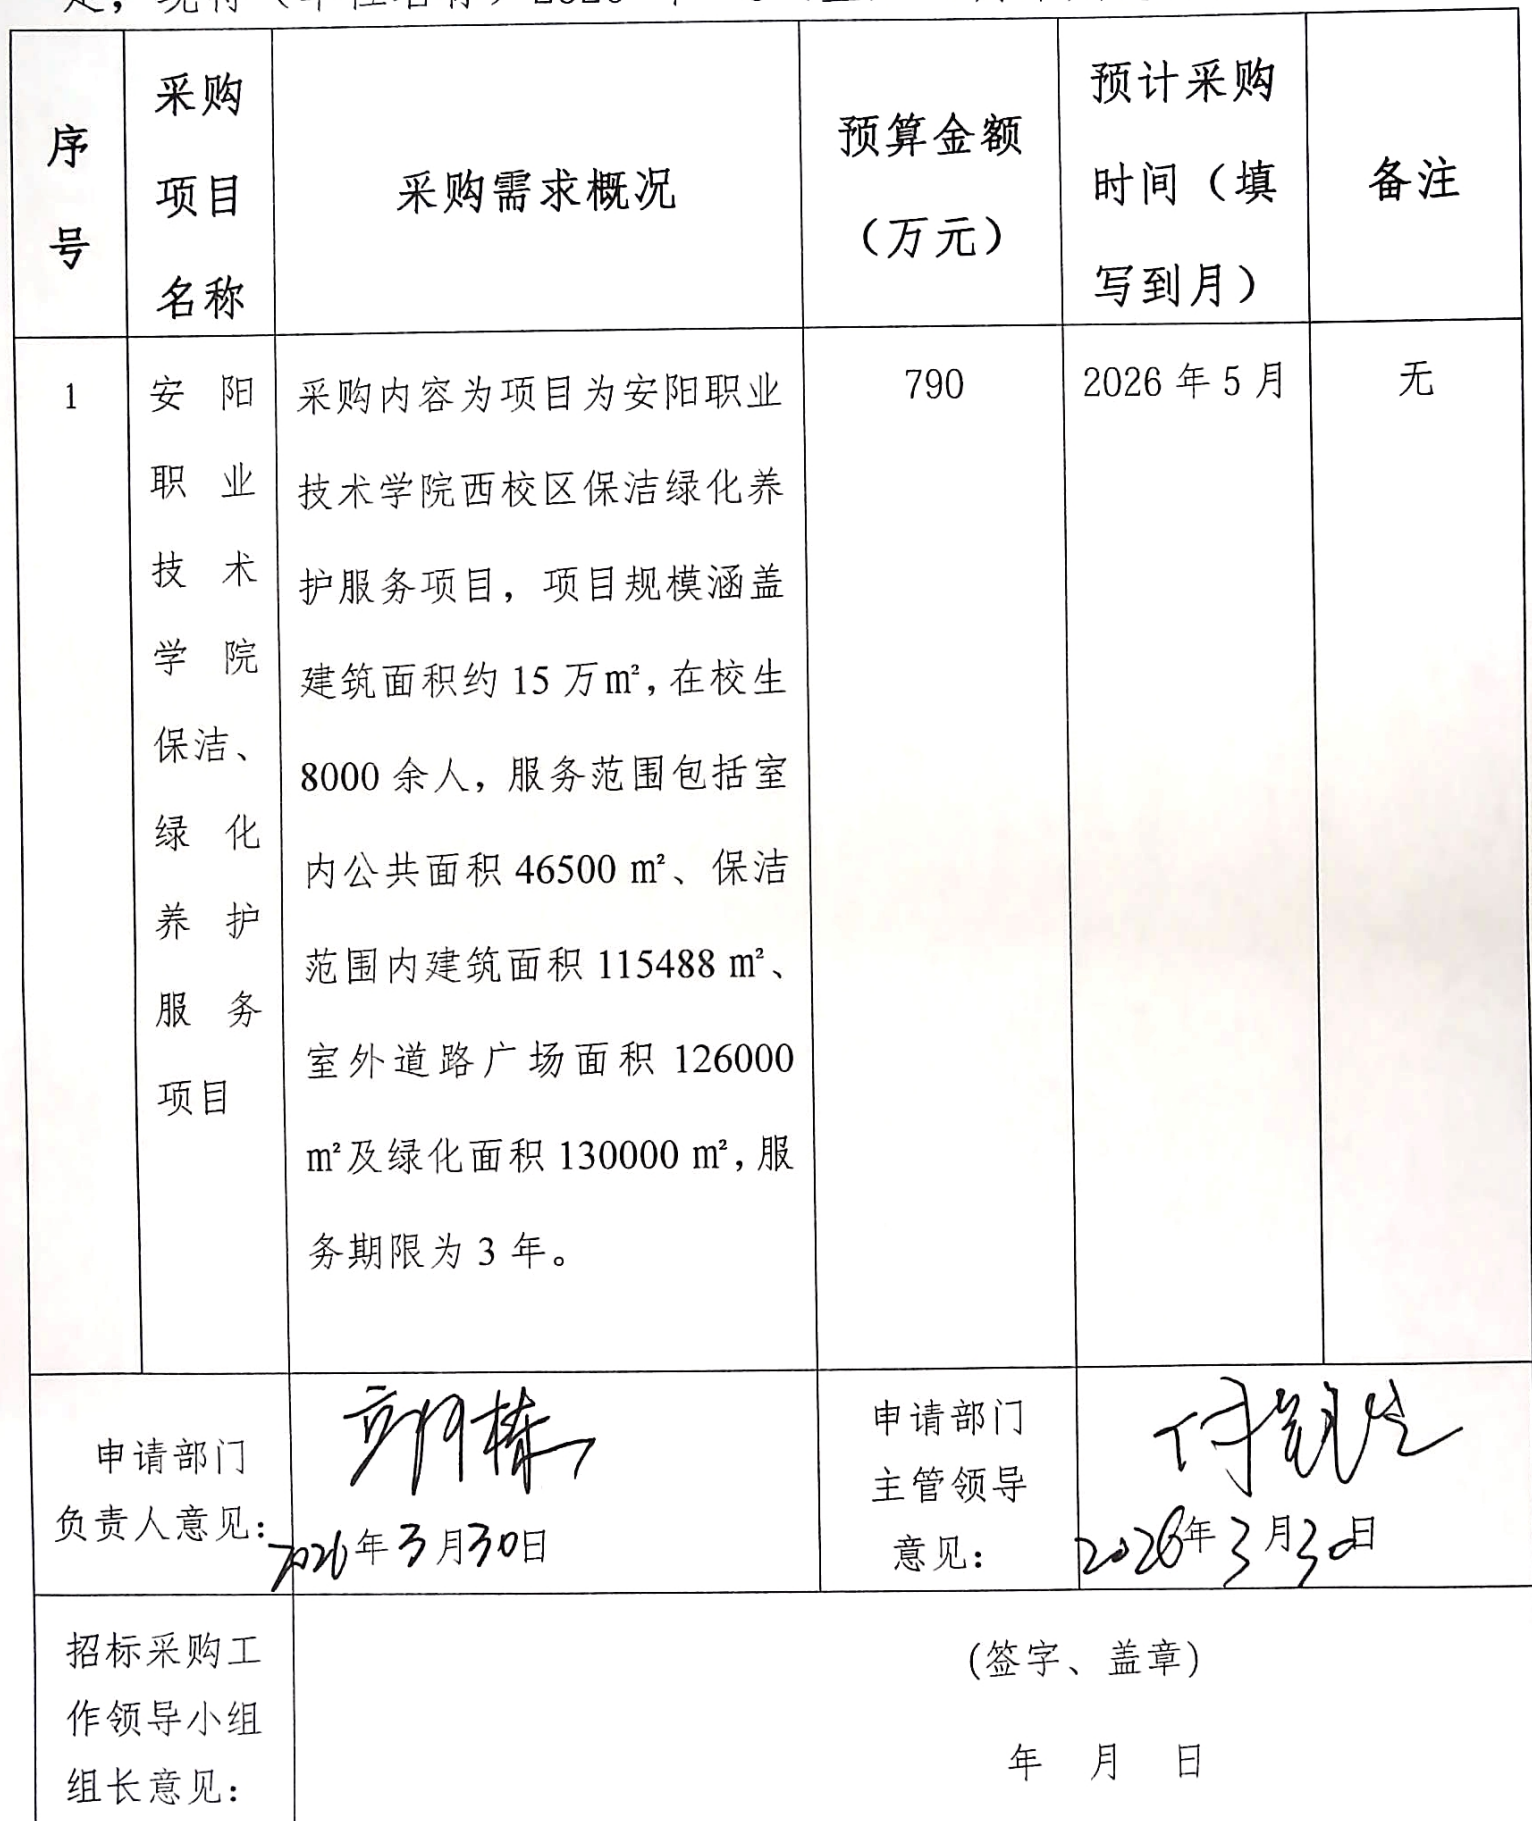 序号
采购项目名称
采购需求概况
预算金额
（万元）
预计采购
时间（填
写到月）
备注
1
安阳
职业
技术
学院
保洁、
绿化
养护
服务
项目
采购内容为项目为安阳职业
技术学院西校区保洁绿化养
护服务项目，项目规模涵盖
建筑面积约 15 万㎡，在校生
8000 余人，服务范围包括室
内公共面积 46500 ㎡、保洁
范围内建筑面积 115488 ㎡、
室外道路广场面积 126000
㎡及绿化面积 130000 ㎡，服
务期限为 3 年。
790
2026 年 5 月
无
申请部门
负责人意见：
2026年3月30日
申请部门
主管领导
意见：
2026年3月30日
招标采购工
作领导小组
组长意见：
(签字、盖章)
年 月 日